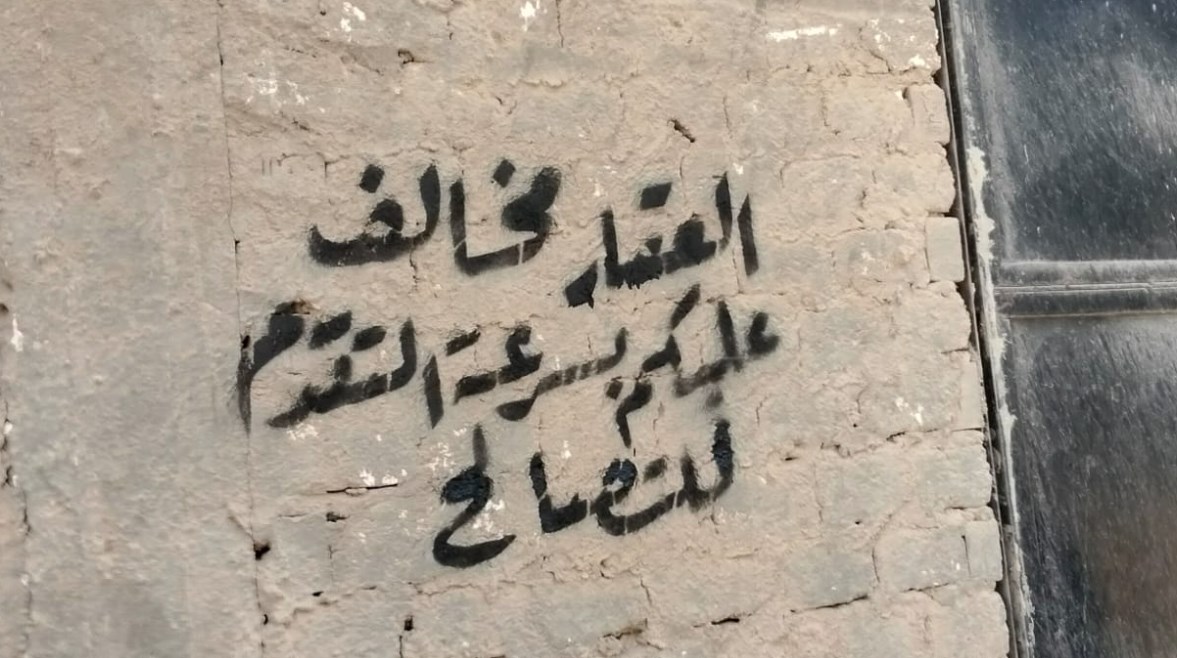 العقار مخالف
عليكم بسرعة التقدم
للتصالح